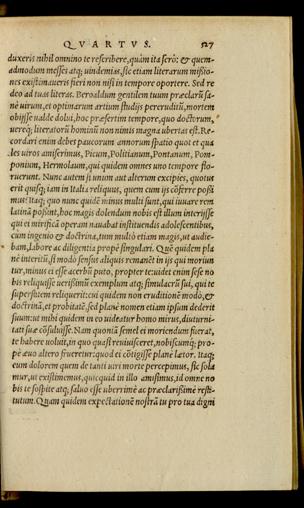 QVARTVS. 127
duxeris nihil omnino te rescribere, quàm ita serò: & quem-
admodum messes atq; uindemias, sic etiam literarum missio-
nes existimaueris fieri non nisi in tempore oportere. Sed re
deo ad tuas literas. Beroaldum gentilem tuum præclarũ sa-
nè uirum, et optimarum artium studijs pereruditũ, mortem
obijsse ualde dolui, hoc præsertim tempore, quo doctorum,
uereq; literatorũ hominũ non nimis magna ubertas est. Re-
cordari enim debes paucorum annorum spatio quot et qua
les uiros amiserimus, Picum, Politianum, Pontanum, Pom-
ponium, Hermolaum, qui quidem omnes uno tempore flo-
ruerunt. Nunc autem si unum aut alterum excipies, quotus
erit quisq; iam in Italia reliquus, quem cum ijs cõferre possi
mus? Itaq; quo nunc quidẽ minus multi sunt, qui iuuare rem
latinã possint, hoc magis dolendum nobis est illum interijsse
qui et mirificã operam nauabat instituendis adolescentibus,
cum ingenio & doctrina, tum multò etiam magis, ut audie-
bam, labore ac diligentia propè singulari. Quẽ quidem pla
nè interitũ, si modò sensus aliquis remanet in ijs qui moriun
tur, minus ei esse acerbũ puto, propter te: uidet enim sese no
bis reliquisse uerissimũ exemplum atq; simulacrũ sui, qui te
superstitem reliquerit: cui quidem non eruditionẽ modò, &
doctrinã, et probitatẽ, sed planè nomen etiam ipsum dederit
suum: ut mihi quidem in eo uideatur homo mirus, diuturni-
tati suæ cõsuluisse. Nam quoniã semel ei moriendum fuerat,
te habere uoluit, in quo quasi reuiuisceret, nobiscumq; pro-
pè æuo altero frueretur: quod ei cõtigisse planè lætor. Itaq;
eum dolorem quem de tanti uiri morte percepimus, sic sola
mur, ut existimemus, quicquid in illo amisimus, id omne no
bis te sospite atq; saluo esse uberrimè ac præclarissimè resti-
tutum. Quam quidem expectationẽ nostrã tu pro tua digni